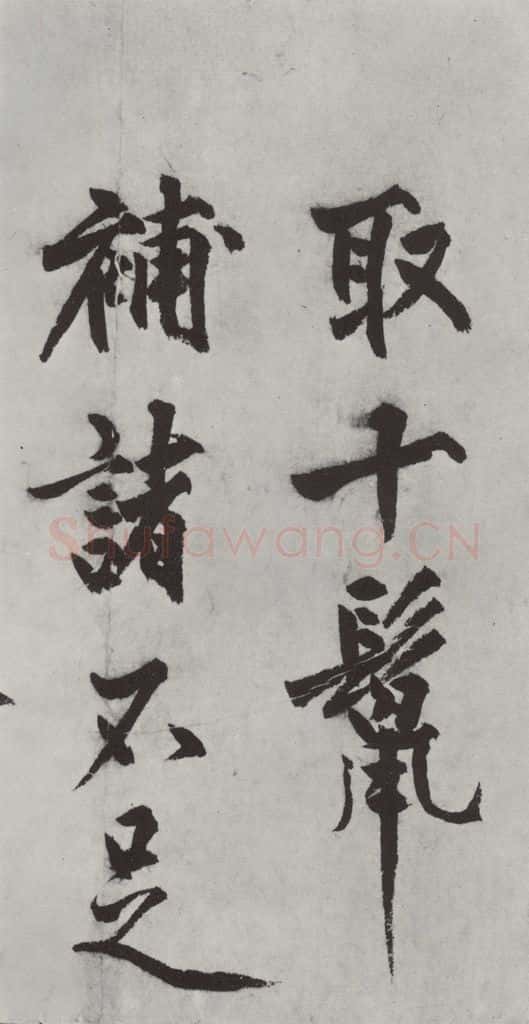 取十鬣
補諸不足
Shufawang.CN